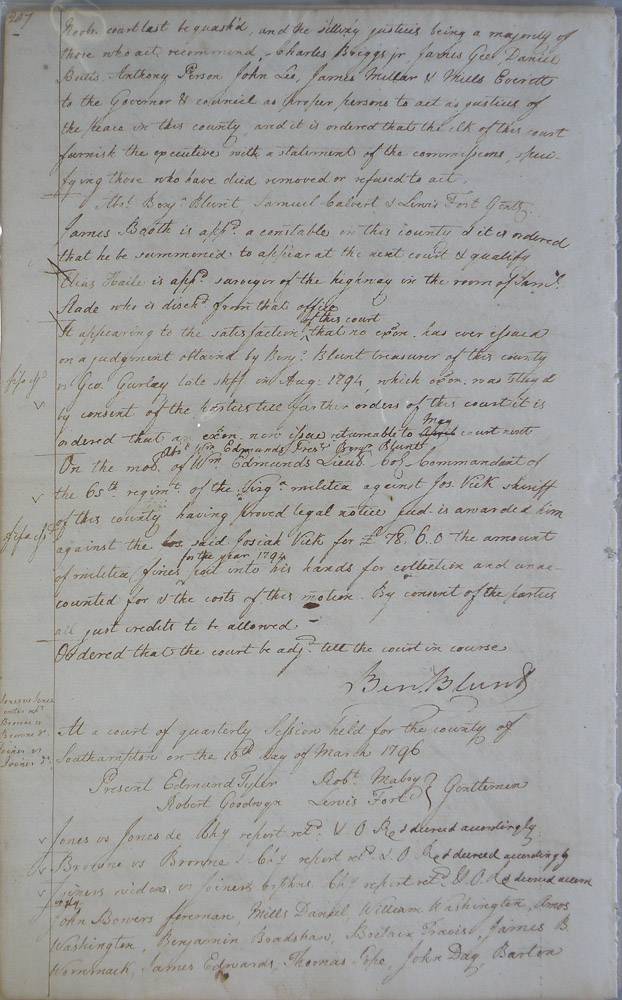 247
court last be quash'd, and the sitting justices being a majority of
those who act, recommend, Charles Briggs jr James Gee, Daniel
Butts, Anthony Person John Lee, James Millar & Mills Everett
to the Governor & council as proper persons to act as justices of
the peace in this county and it is ordered that the clk of this court
furnish the executive with a statement of the commissions, speci-
fying those who have died removed or refused to act.
Abst. Benja Blunt Samuel Calvert & Lewis Fort Gents.
James Booth is appd. a constable in this county & it is ordered
that he be summoned to appear at the next court & qualify
Elias Haile is appd. surveyor of the highway in the room of Saml.
Slade who is dischd from that office
of this court
It appearing to the satisfaction ^ that no exon. has ever issued
on a judgment obtained by Benja. Blunt treasurer of this county
vs Geo. Gurley late shff. in Aug: 1794, which exon. was stayd
by consent of the parties till farther orders of this court it is
May
ordered that an exon. now issue returnable to April court next
Abst. Wm. Edmunds Prest. Benja. Blunt
On the mod. of Wm Edmunds Lieut. Col. Commandant of
the 65th. regimt. of the Virga militia against Jos. Vick sheriff
of this county having proved legal notice jud. is awarded him
against the Jos. said Josiah Vick for £78.6.0 the amount
for the year 1794
of militia fines put into his hands for collection and unac-
counted for & the costs of this motion. By consent of the parties
all just credits to be allowed -
Ordered that the court be adjd. till the court in course
Ben Blunt
At a court of quarterly Session held for the county of
Southampton on the 10th day of March 1796
Present Edmund Tyler Robt. Mabry } Gentlemen
Robert Goodwyn Lewis Fort
Jones vs Jones &c Chy report retd. & O Rd & decreed accordingly
Browne vs Browne &c Chy report retd. & O Rd & decreed accordingly
Joiners widow vs Joiners orphns. Chy report retd. & O Rd & decreed accord
ingly
John Bowers foreman, Mills Daniel, William Washington, Amos
Washington, Benjamin Bradshaw, Britain Travis, James B.
Wommack, James Edwards, Thomas Pope, John Day, Barton
fi fa issd
fi fa issd
Jones vs Jones
Browne vs
Browne &c
Joiner vs
Joiner &c